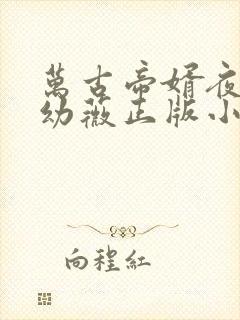 萬古帝婿夜
幼薇正版小
向程紅